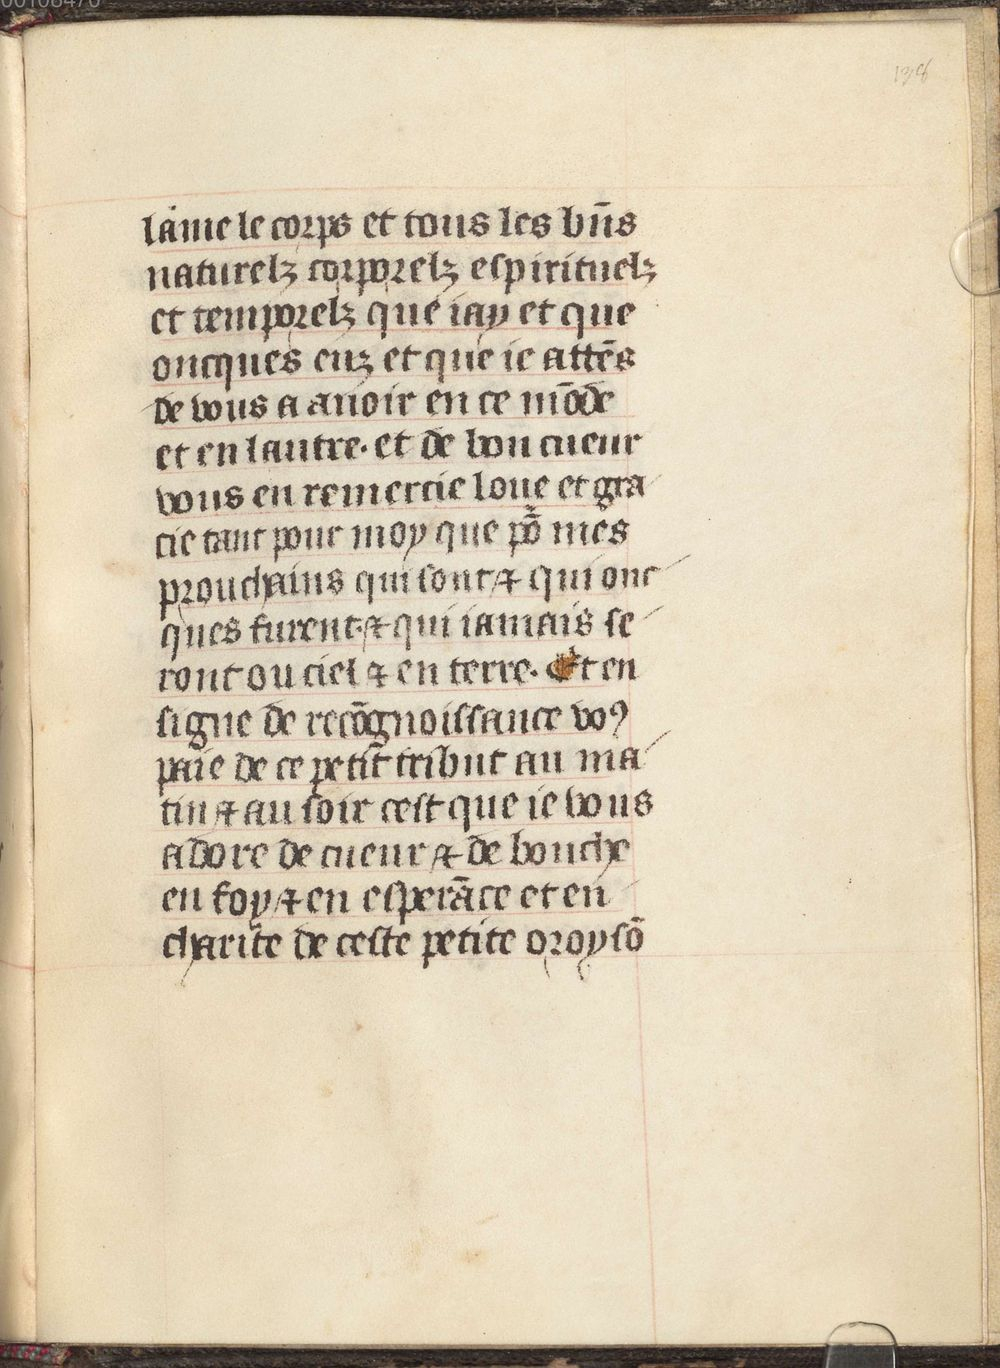 138
lãme le corps et tous les bñs
naturelz corporelz espirituelz
et temporelz que iay et que
oncques euz et que ie attẽs
de vous a auoir en ce mõde
et en lautre. et de bon cueur
vous en remercie loue et gra
cie tant pour moy que põ mes
prouchains qui sont ⁊ qui onc
ques furent. ⁊ qui iamais se
ront ou ciel ⁊ en terre. Et en
signe de recõgnoissance voꝰ
paie de ce petit tribut au ma
tin ⁊ au soir cest que ie vous
adore de cueur ⁊ de bouche
en foy ⁊ en esperãce et en
charite de ceste petite oroysõ